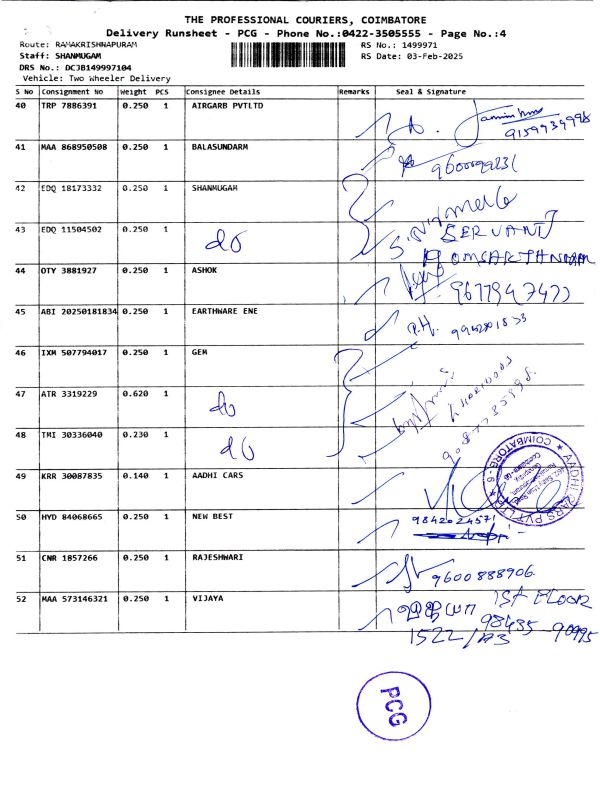 THE PROFESSIONAL COURIERS, COIMBATORE
Delivery Runsheet - PCG - Phone No.:0422-3505555 - Page No.:4
Route: RAMAKRISHNAPURAM RS No.: 1499971
Staff: SHANMUGAM RS Date: 03-Feb-2025
DRS No.: DCJB149997104
Vehicle: Two Wheeler Delivery
S No Consignment No Weight PCS Consignee Details Remarks Seal & Signature
40 TRP 7886391 0.250 1 AIRGARB PVTLTD
9159939998
41 MAA 868950508 0.250 1 BALASUNDARM
42 EDQ 18173332 0.250 1 SHANMUGAM
43 EDQ 11504502 0.250 1 do SERVANT
44 OTY 3881927 0.250 1 ASHOK
9677947477
45 ABI 20250181834 0.250 1 EARTHWARE ENE P.H.
46 IXM 507794017 0.250 1 GEM
47 ATR 3319229 0.620 1 do
48 TMI 30336040 0.230 1 do
49 KRR 30087835 0.140 1 AADHI CARS
AADHI CARS PVT LTD COIMBATORE-6
50 HYD 84068665 0.250 1 NEW BEST 9842024571
51 CNR 1857266 0.250 1 RAJESHWARI 9600888906
52 MAA 573146321 0.250 1 VIJAYA 1ST FLOOR
98435 90995
1522/A3
PCG